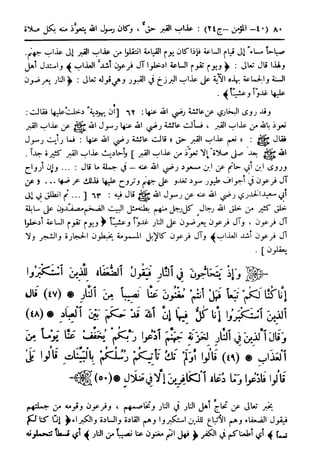 ٨٠ (٤٠ - المؤمن - ج٢٤) : عذاب القبر حق ، وكان رسول الله يتعوّذ منه بكل صلاة
صباحاً مساءً إلى قيام الساعة فإذا كان يوم القيامة انتقلوا من عذاب القبر إلى عذاب جهنم.
ولهذا قال تعالى : ﴿ويوم تقوم الساعة ادخلوا آل فرعون أشدّ العذاب﴾ واستدل أهل
السنة والجماعة بهذه الآية على عذاب البرزخ في القبور وهي قوله تعالى : ﴿النار يعرضون
عليها غدوّاً وعشيّاً﴾ .
وقد روى البخاري عن عائشة رضي الله عنها: ٦٢ [أن يهودية دخلت عليها فقالت:
نعوذ بالله من عذاب القبر ، فسألت عائشة رضي الله عنها رسول الله عن عذاب القبر
فقال : نعم عذاب القبر حق ، قالت عائشة رضي الله عنها : فما رأيت رسول
الله بعد صلى صلاة إلا تعوّذ من عذاب القبر ] وأحاديث عذاب القبر كثيرة جداً .
وروى ابن أبي حاتم عن ابن مسعود رضي الله عنه - في جملة ما قال : ... وإن أرواح
آل فرعون في أجواف طيور سود تغدو على جهنم وتروح عليها فذلك عرضها ... وعن
أبي سعيد الخدري رضي الله عنه عن رسول الله قال فيه : ٦٣ [ ... ثم انطلق بي إلى
خلق كثير من خلق الله رجال كل رجل منهم بطنه مثل البيت الضخم مصفدون على سابلة
آل فرعون ، وآل فرعون يعرضون على النار غدوّاً وعشيّاً ﴿ويوم تقوم الساعة أدخلوا
آل فرعون أشد العذاب﴾ وآل فرعون كالإبل المسومة يخبطون الحجارة والشجر ولا
يعقلون ] .
وَإِذْ يَتَحَاجُّونَ فِي النَّارِ فَيَقُولُ الضُّعَفَاءُ لِلَّذِينَ اسْتَكْبَرُوا
إِنَّا كُنَّا لَكُمْ تَبَعاً فَهَلْ أَنْتُمْ مُغْنُونَ عَنَّا نَصِيباً مِنَ النَّارِ (٤٧) قَالَ
الَّذِينَ اسْتَكْبَرُوا إِنَّا كُلٌّ فِيهَا إِنَّ اللَّهَ قَدْ حَكَمَ بَيْنَ الْعِبَادِ (٤٨)
وَقَالَ الَّذِينَ فِي النَّارِ لِخَزَنَةِ جَهَنَّمَ ادْعُوا رَبَّكُمْ يُخَفِّفْ عَنَّا يَوْماً مِنَ
الْعَذَابِ (٤٩) قَالُوا أَوَلَمْ تَكُ تَأْتِيكُمْ رُسُلُكُمْ بِالْبَيِّنَاتِ قَالُوا بَلَىٰ
قَالُوا فَادْعُوا وَمَا دُعَاءُ الْكَافِرِينَ إِلَّا فِي ضَلَالٍ (٥٠)
يخبر تعالى عن تحاجّ أهل النار في النار وتخاصمهم ، وفرعون وقومه من جملتهم
فيقول الضعفاء وهم الأتباع للذين استكبروا وهم القادة والسادة والكبراء ﴿إنا كنا لكم
تبعاً﴾ أي أطعناكم في الكفر ﴿فهل انتم مغنون عنا نصيباً من النار﴾ أي قسطاً تتحملونه